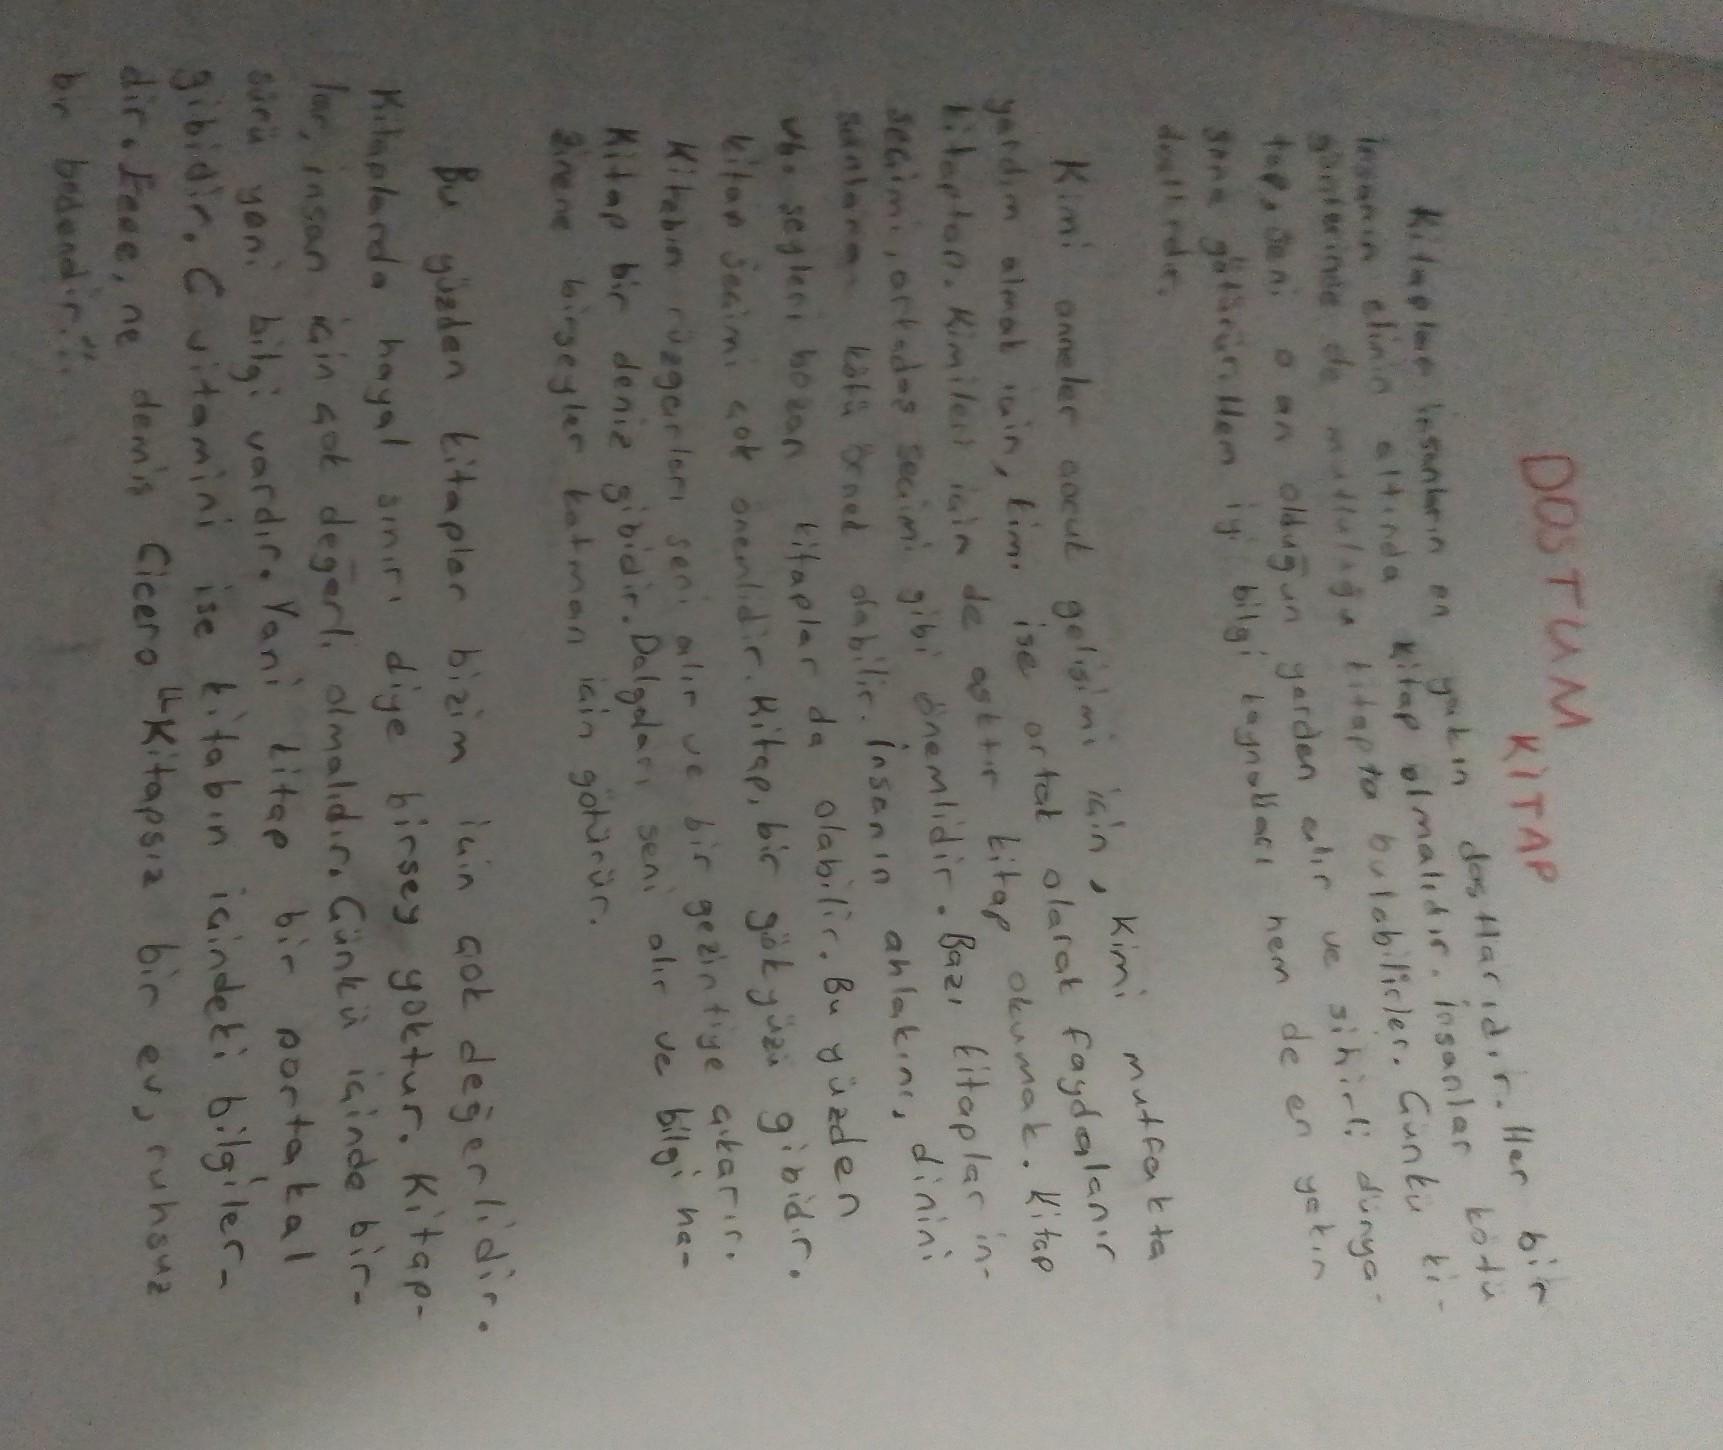 DOSTUM KİTAP
Kitaplar insanların en yakın dostlarıdır. Her bir
insanın elinin altında kitap olmalıdır. İnsanlar kötü
günlerinde de mutluluğu kitapta bulabilirler. Çünkü ki-
tap, seni o an olduğun yerden alır ve sihirli dünya-
sına götürür. Hem iyi bilgi kaynakları hem de en yakın
dosttırdır.
Kimi anneler çocuk gelişimi için, kimi mutfakta
yardım almak için, kimi ise ortak olarak faydalanır
kitaptan. Kimileri için de aşktır kitap okumak. Kitap
seçimi, arkadaş seçimi gibi önemlidir. Bazı kitaplar in-
sanlara kötü örnek olabilir. İnsanın ahlakını, dinini
vb. şeyleri bozan kitaplar da olabilir. Bu yüzden
kitap seçimi çok önemlidir. Kitap, bir gökyüzü gibidir.
Kitabın rüzgarları seni alır ve bir gezintiye çıkarır.
Kitap bir deniz gibidir. Dalgaları seni alır ve bilgi ha-
zinene birşeyler katman için götürür.
Bu yüzden kitaplar bizim için çok değerlidir.
Kitaplarda hayal sınırı diye birşey yoktur. Kitap-
lar, insan için çok değerli olmalıdır. Çünkü içinde bir-
sürü yeni bilgi vardır. Yani kitap bir portakal
gibidir. C vitamini ise kitabın içindeki bilgiler-
dir. Eeee, ne demiş Cicero "Kitapsız bir ev, ruhsuz
bir bedendir.".